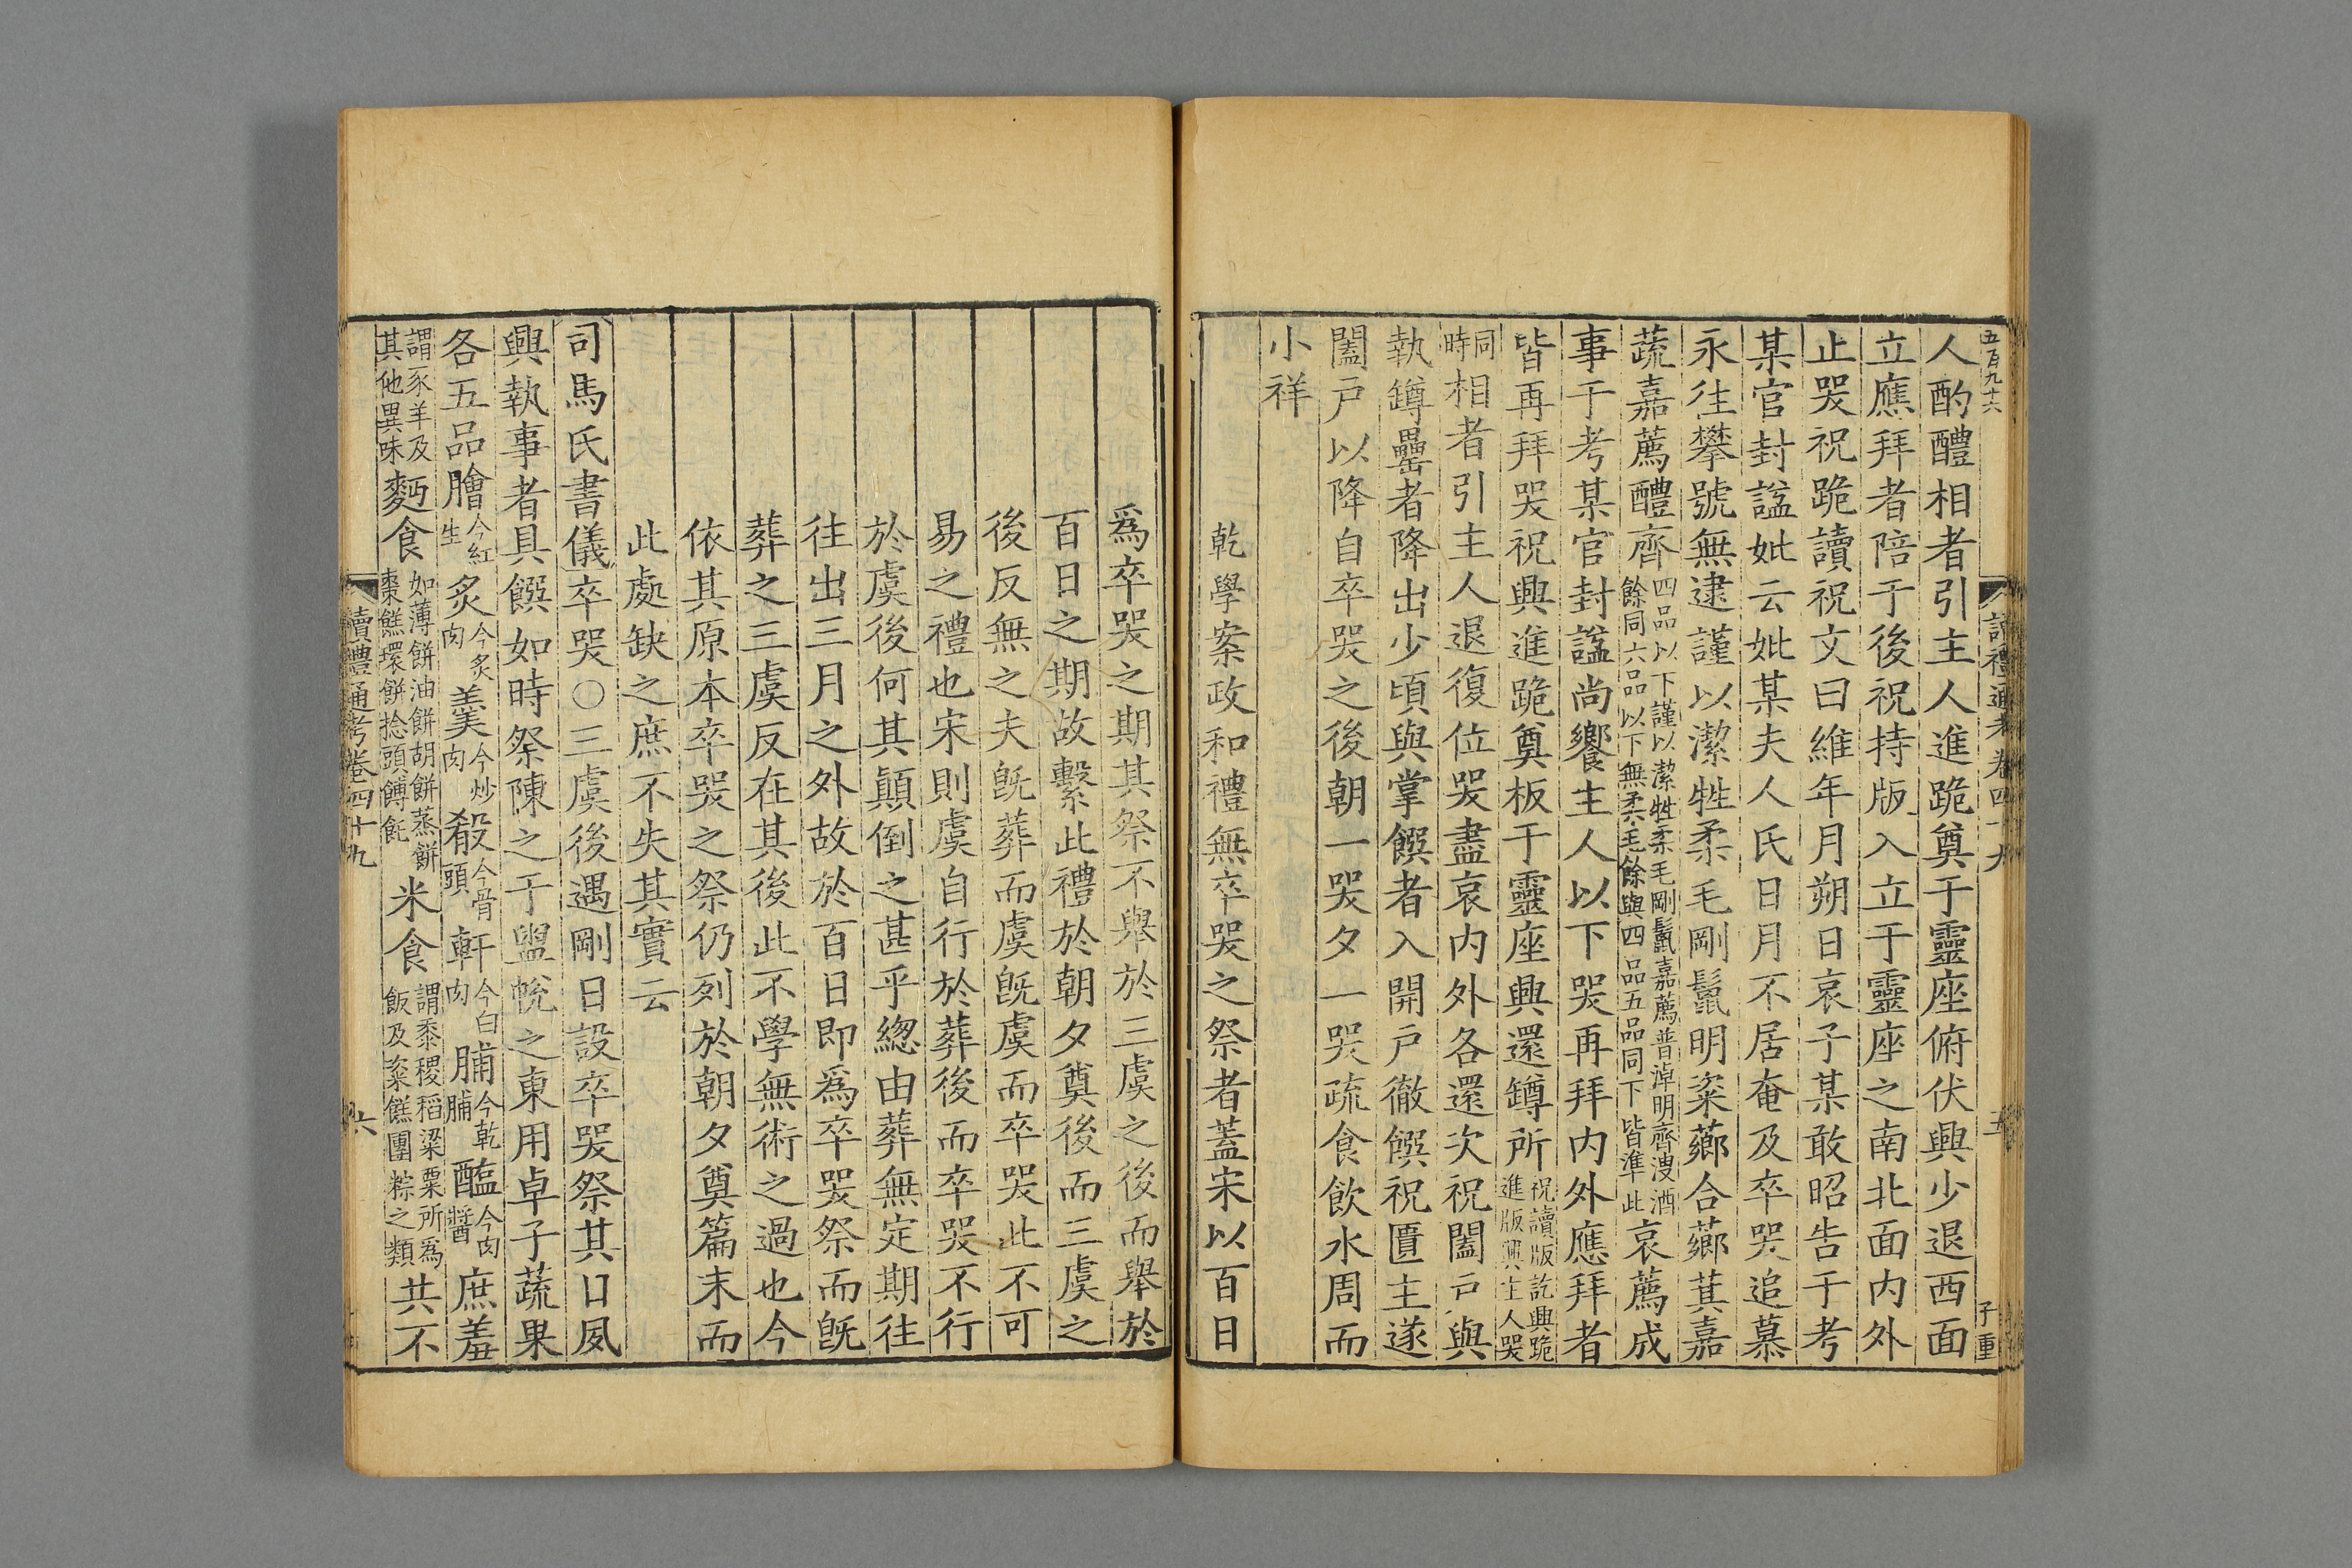 五百九十六
讀禮通考卷四十九
五
子重
人酌醴相者引主人進跪奠于靈座俯伏興少退西面
立應拜者陪于後祝持版入立于靈座之南北面内外
止哭祝跪讀祝文曰維年月朔日哀子某敢昭告于考
某官封諡妣云妣某夫人氏日月不居奄及卒哭追慕
永往攀號無逮謹以潔牲柔毛剛鬣明粢薌合薌萁嘉
蔬嘉薦醴齊四品以下謹以潔牲柔毛剛鬣嘉薦普淖明齊溲酒餘同六品以下無柔毛餘與四品五品同下皆準此哀薦成
事于考某官封諡尚饗主人以下哭再拜内外應拜者
皆再拜哭祝興進跪奠板于靈座興還罇所祝讀版訖興跪進版興主人哭
同時相者引主人退復位哭盡哀内外各還次祝闔戶與
執罇罍者降出少頃與掌饌者入開戶徹饌祝匱主遂
闔戶以降自卒哭之後朝一哭夕一哭疏食飲水周而
小祥
乾學案政和禮無卒哭之祭者蓋宋以百日
爲卒哭之期其祭不舉於三虞之後而舉於
百日之期故繫此禮於朝夕奠後而三虞之
後反無之夫旣葬而虞旣虞而卒哭此不可
易之禮也宋則虞自行於葬後而卒哭不行
於虞後何其顚倒之甚乎總由葬無定期往
往出三月之外故於百日即爲卒哭祭而旣
葬之三虞反在其後此不學無術之過也今
依其原本卒哭之祭仍列於朝夕奠篇末而
此處缺之庶不失其實云
司馬氏書儀卒哭○三虞後遇剛日設卒哭祭其日夙
興執事者具饌如時祭陳之于盥帨之東用卓子蔬果
各五品膾今紅生炙今炙肉羹今炒肉殽今骨頭軒今白肉脯今乾脯醢今肉醬庶羞
謂豕羊及其他異味麪食如薄餅油餅胡餅蒸餅棗餻環餅捻頭餺飥米食謂黍稷稻粱粟所爲飯及粢餻團粽之類共不
讀禮通考卷四十九
六